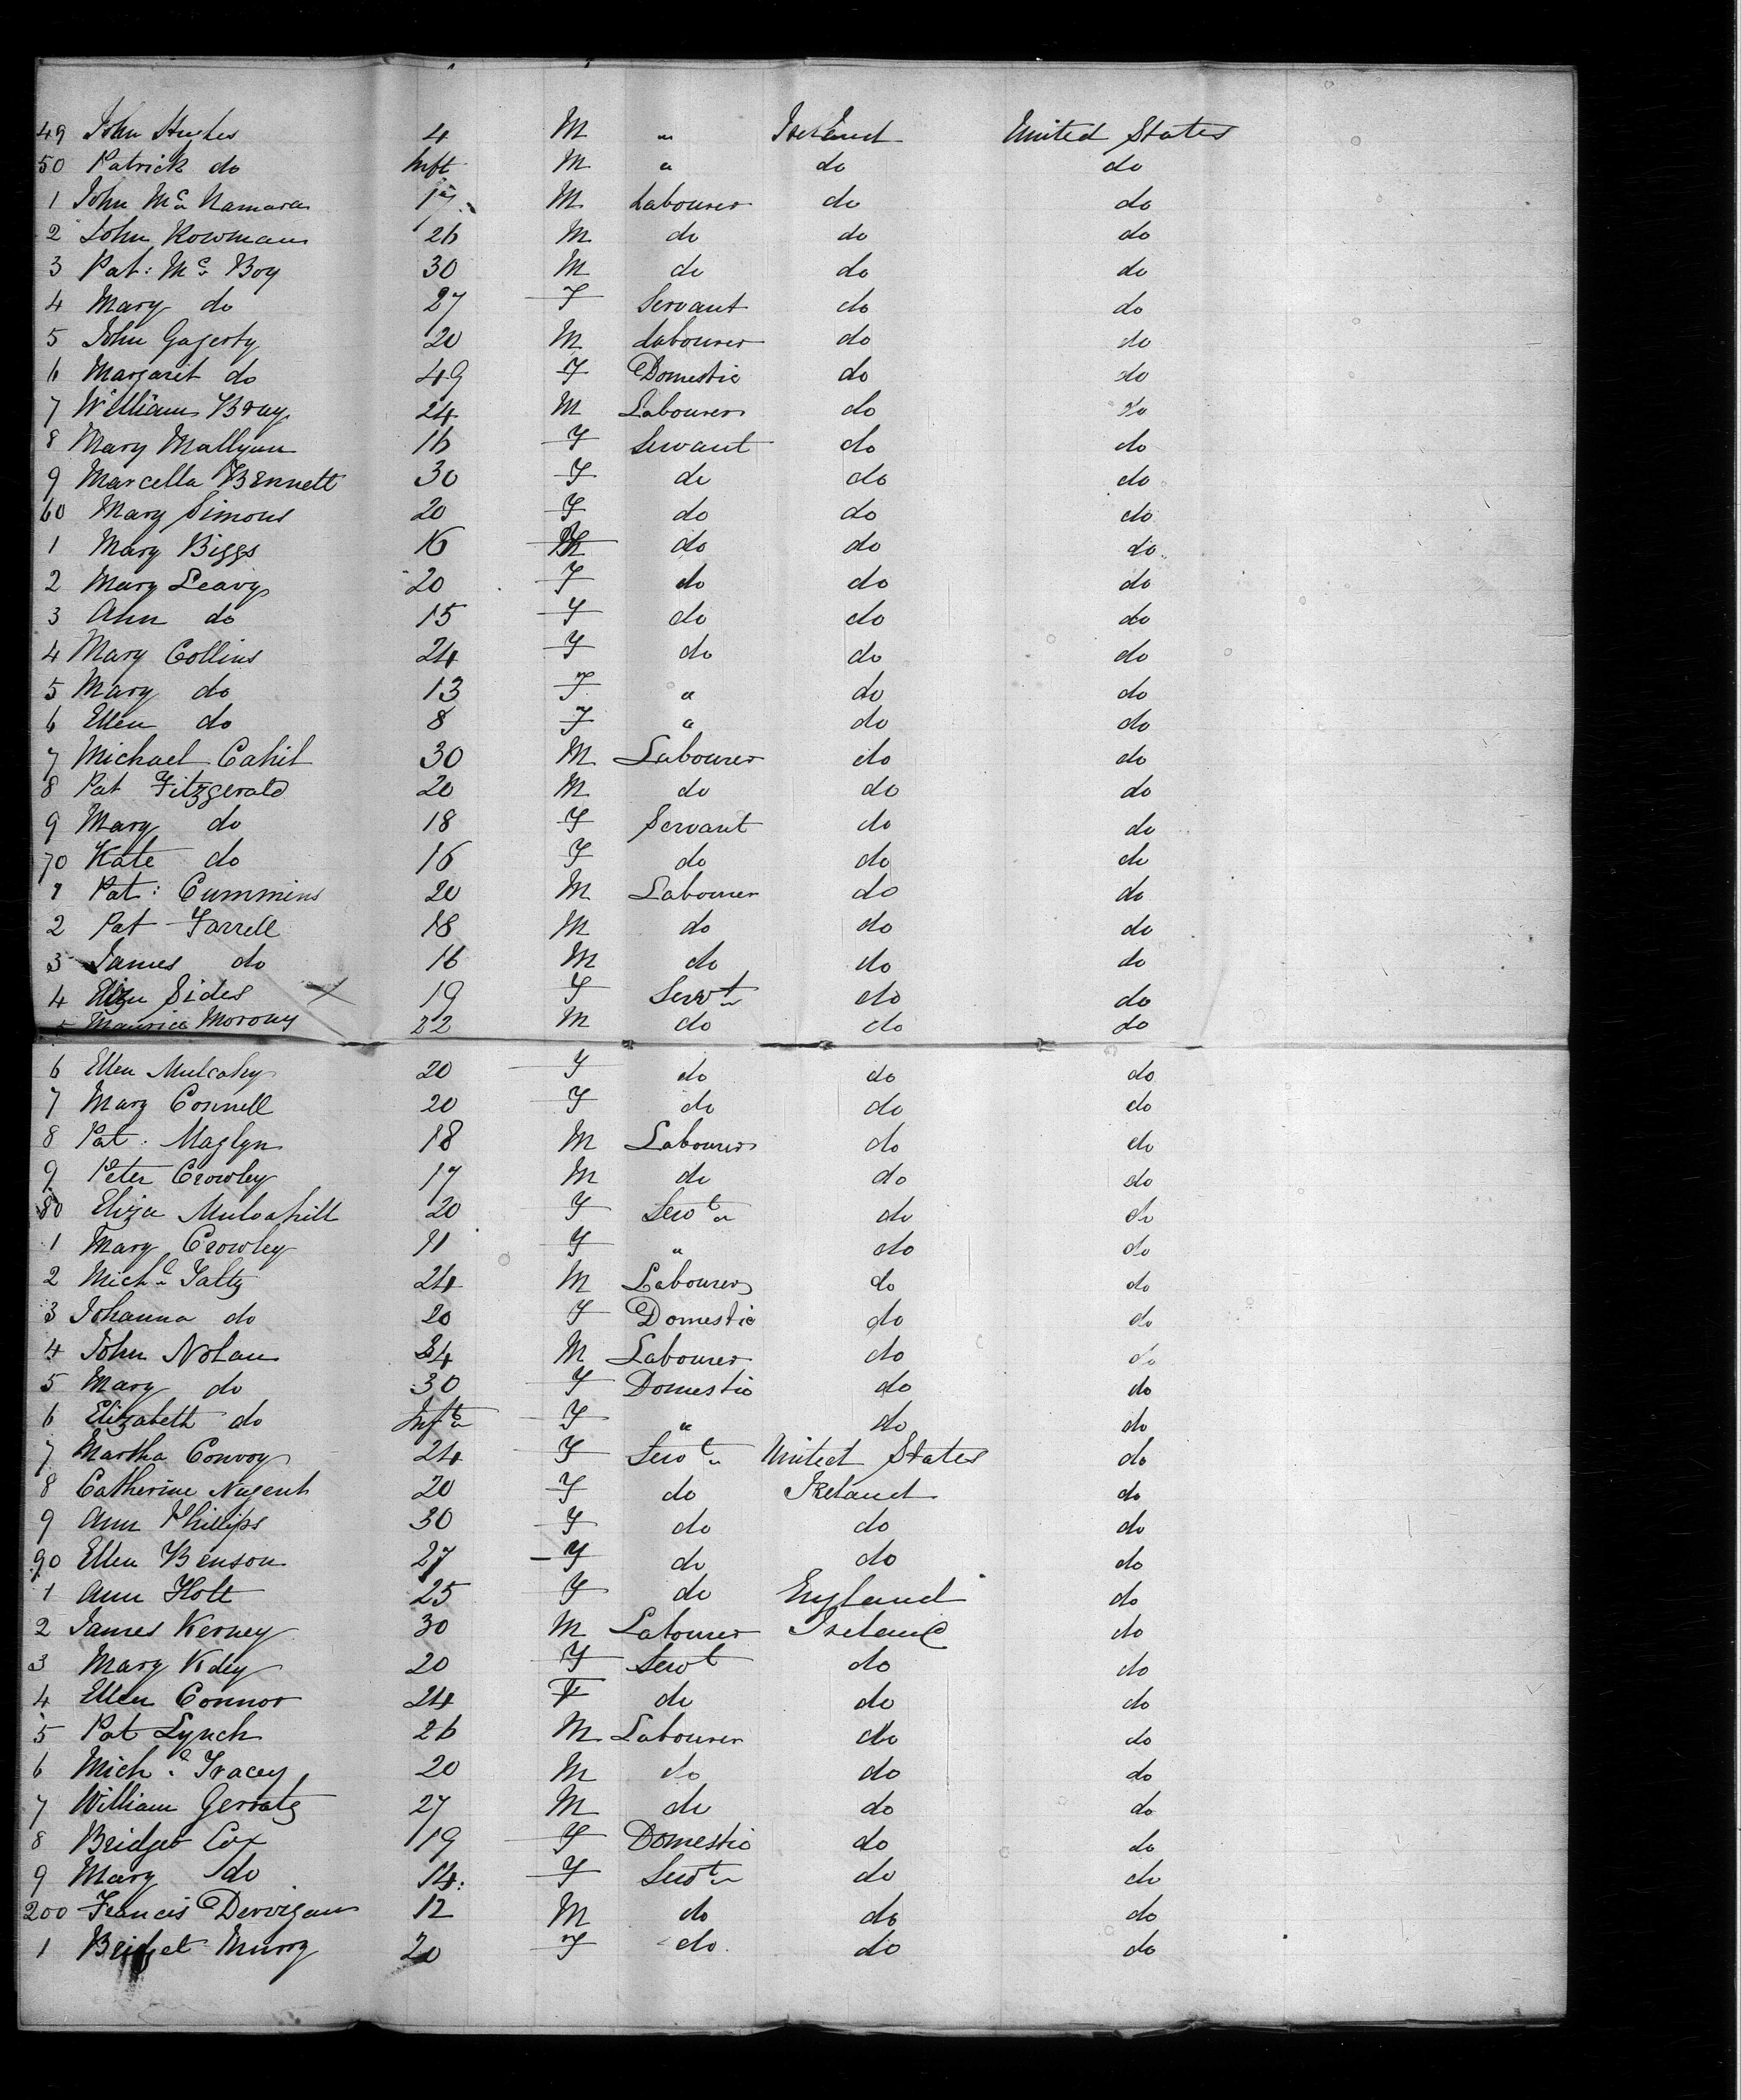 49 John Hughes 4 M " Ireland United States
50 Patrick do Inft M " do do
1 John Mc Namara 17 M Labourer do do
2 John Rowman 26 M do do do
3 Pat: Mc Boy 30 M do do do
4 Mary do 27 F Servant do do
5 John Gagerty 20 M Labourer do do
6 Margaret do 49 F Domestic do do
7 William Bray 24 M Labourer do do
8 Mary Mallyun 16 F Servant do do
9 Marcella Bennett 30 F do do do
60 Mary Simons 20 F do do do
1 Mary Biggs 16 do do do
2 Mary Leavy 20 F do do do
3 Ann do 15 F do do do
4 Mary Collins 24 F do do do
5 Mary do 13 F " do do
6 Ellen do 8 F " do do
7 Michael Cahil 30 M Labourer do do
8 Pat Fitzgerald 20 M do do do
9 Mary do 18 F Servant do do
70 Kate do 16 F do do do
1 Pat: Cummins 20 M Labourer do do
2 Pat Farrell 18 M do do do
3 James do 16 M do do do
4 Eliza Sides X 19 F Servt do do
5 Maurice Morony 22 M do do do
6 Ellen Mulcahy 20 F do do do
7 Mary Connell 20 F do do do
8 Pat: Maglyn 18 M Labourer do do
9 Peter Crowley 17 M do do do
80 Eliza Mulvahill 20 F Servt do do
1 Mary Crowley 11 F " do do
2 Michl Falty 24 M Labourer do do
3 Johanna do 20 F Domestic do do
4 John Nolan 34 M Labourer do do
5 Mary do 30 F Domestic do do
6 Elizabeth do Inft F " do do
7 Martha Convoy 24 F Servt United States do
8 Catherine Nugent 20 F do Ireland do
9 Ann Phillips 30 F do do do
90 Ellen Benson 27 F do do do
1 Ann Holt 25 F do England do
2 James Kerney 30 M Labourer Ireland do
3 Mary Kdey 20 F Servt do do
4 Ellen Connor 24 F do do do
5 Pat Lynch 26 M Labourer do do
6 Michl Tracey 20 M do do do
7 William Gerraty 27 M do do do
8 Bridget Cox 19 F Domestic do do
9 Mary do 14 F Servt do do
200 Francis Dervigan 12 M do do do
1 Bridget Murry 20 F do do do